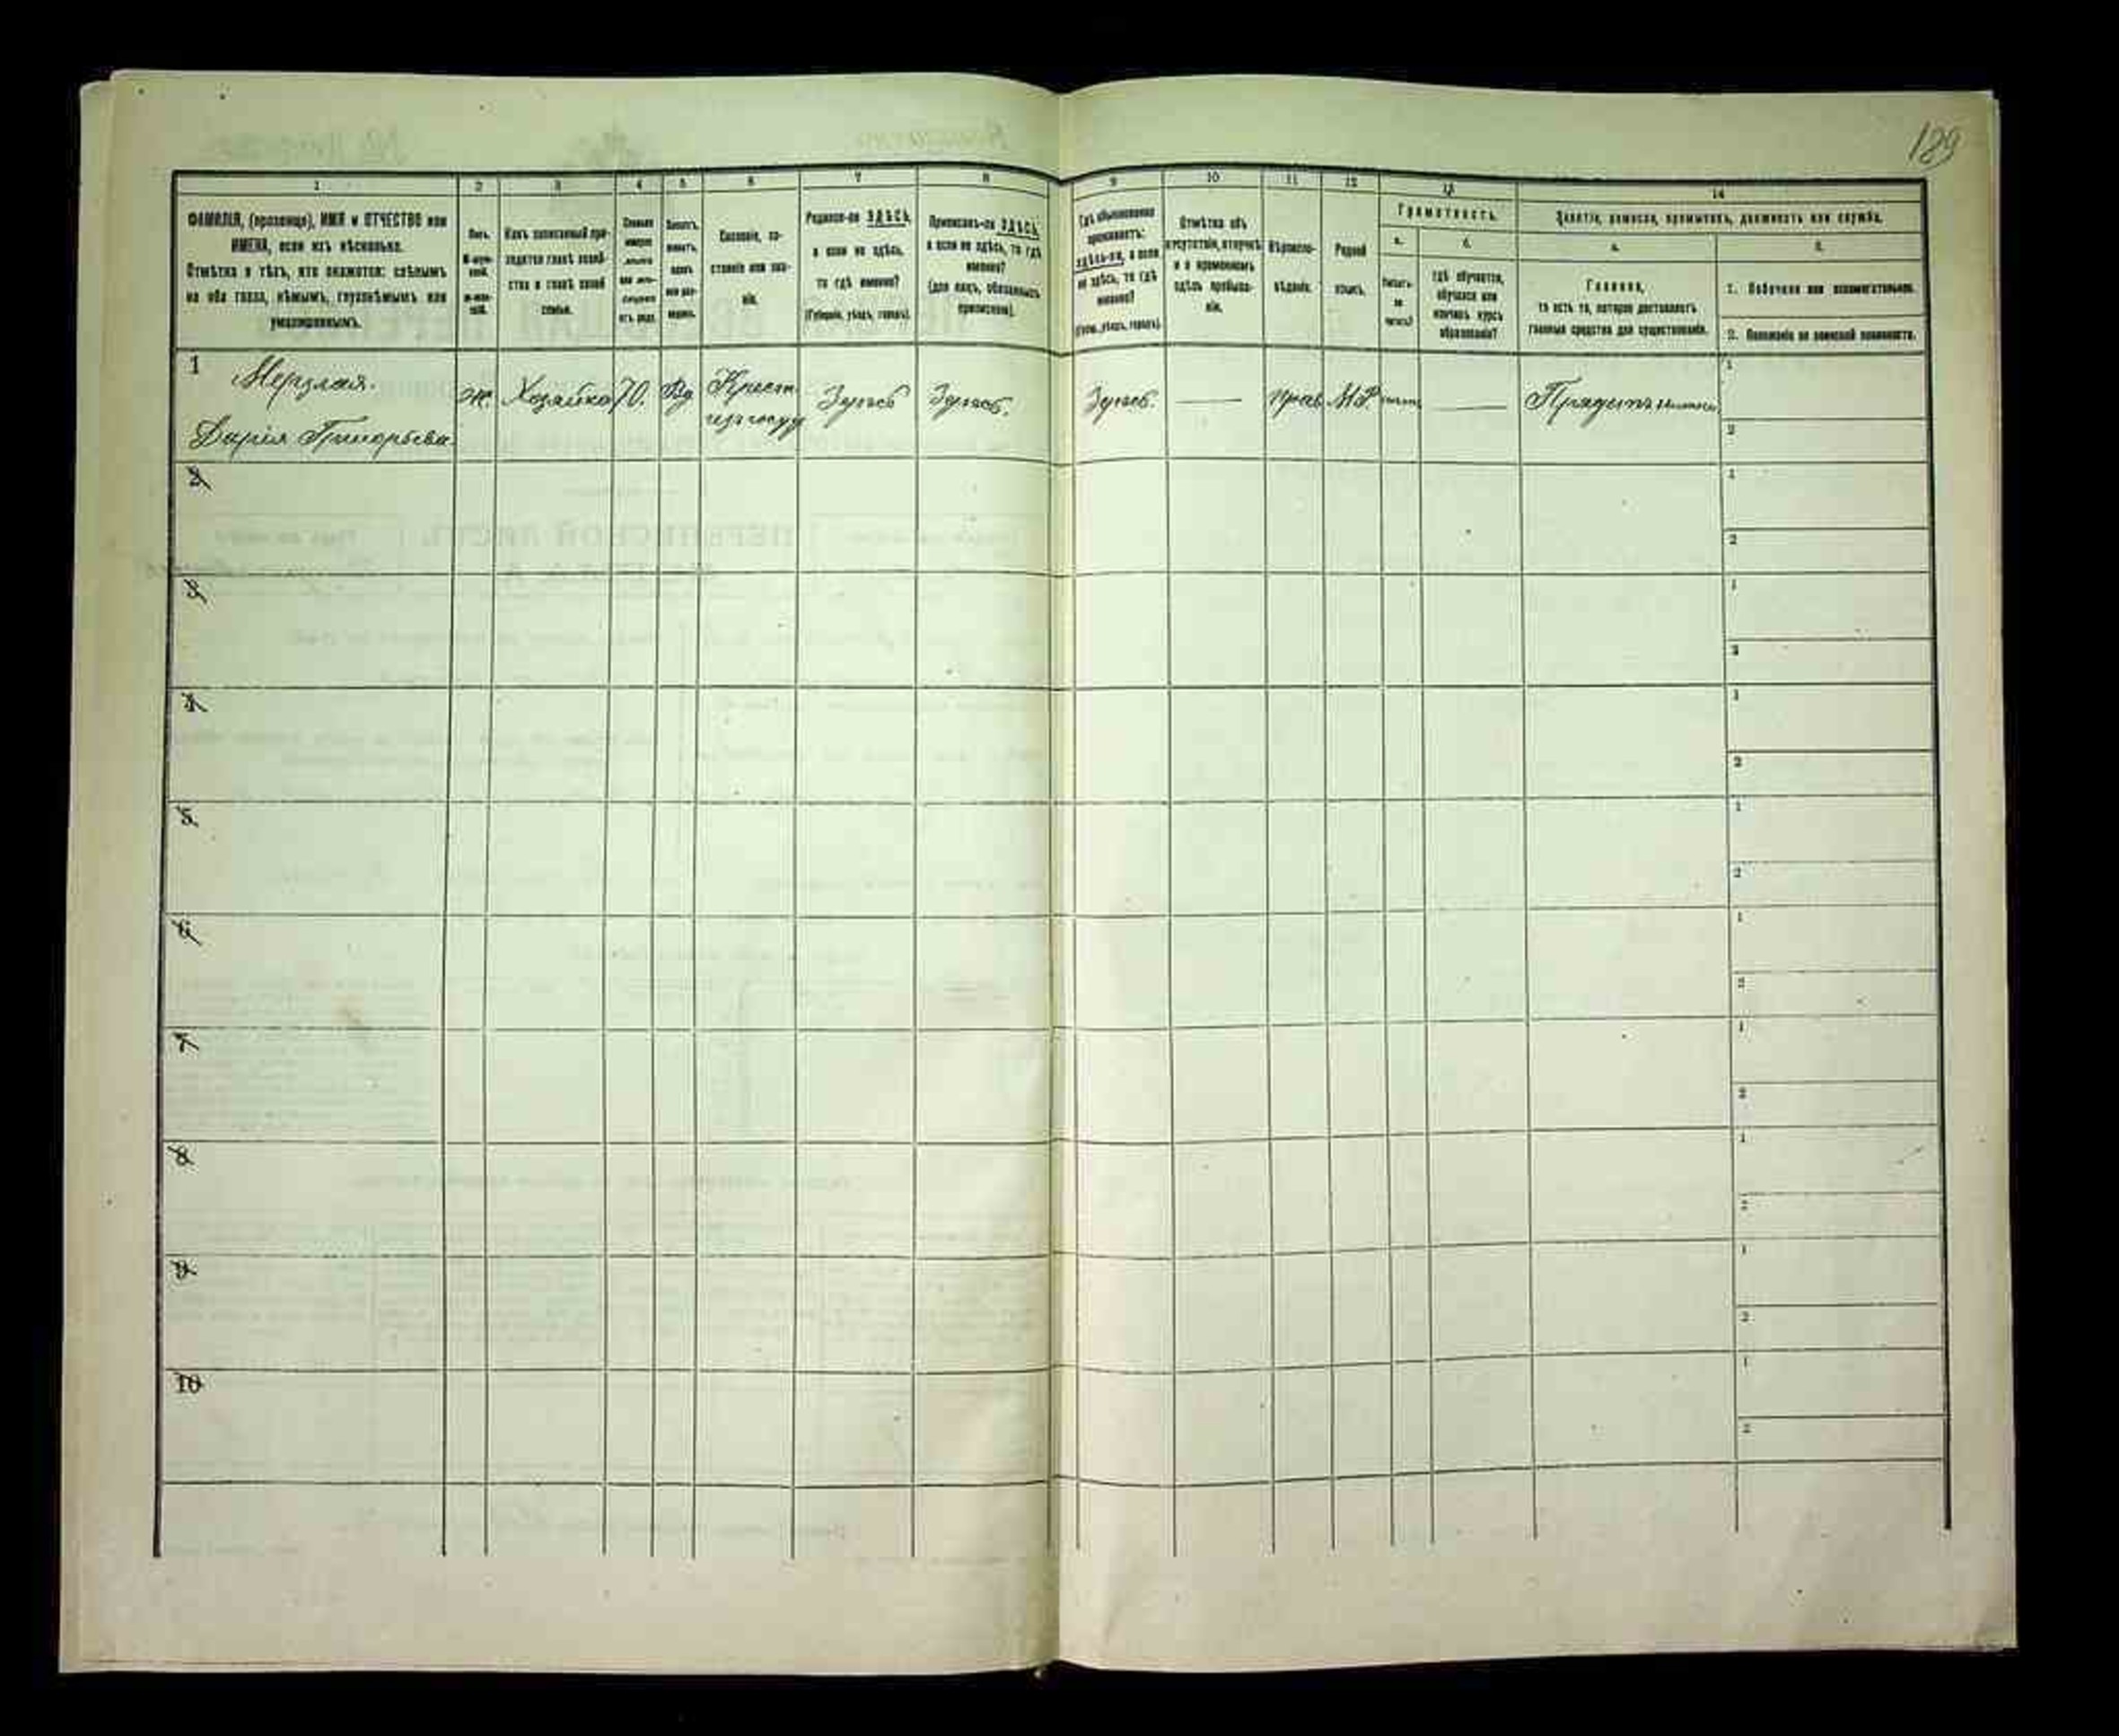 189
1 2 3 4 5 6 7 8 9 10 11 12 13 14
ФАМИЛІЯ, (прозвище), ИМЯ и ОТЧЕСТВО или
ИМЕНА, если ихъ нѣсколько.
Отмѣтка о тѣхъ, кто окажется: слѣпымъ
на оба глаза, нѣмымъ, глухонѣмымъ или
умалишеннымъ.
Полъ.
М-муж-
ской.
ж-жен-
скій.
Какъ записанный при-
ходится главѣ хозяй-
ства и главѣ своей
семьи.
Сколько
минуло
лѣтъ
или мѣ-
сяцевъ
отъ роду.
Холостъ,
женатъ,
вдовъ
или раз-
веденъ.
Сословіе, со-
стояніе или зва-
ніе.
Родился-ли ЗДѢСЬ,
а если не здѣсь,
то гдѣ именно?
(Губернія, уѣздъ, городъ).
Приписанъ-ли ЗДѢСЬ,
а если не здѣсь, то гдѣ
именно?
(для лицъ, обязанныхъ
припискою).
Гдѣ обыкновенно
проживаетъ:
здѣсь-ли, а если
не здѣсь, то гдѣ
именно?
(Губ., уѣздъ, городъ).
Отмѣтка объ
отсутствіи, отлучкѣ
и о временномъ
здѣсь пребыва-
ніи.
Вѣроиспо-
вѣданіе.
Родной
языкъ.
Грамотность.
а. б.
Умѣетъ-
ли
читать?
гдѣ обучается,
обучался или
кончилъ курсъ
образованія?
Занятіе, ремесло, промыселъ, должность или служба.
а. б.
Главное,
то есть то, которое доставляетъ
главныя средства для существованія.
1. Побочное или вспомогательное.
2. Положеніе по воинской повинности.
1 Мерзлая.
Дарія Григорьева
ж. Хозяйка 70. Вд Крест.
из госуд
Здѣсь Здѣсь. Здѣсь. — Прав М.Р. —
1
2
2
1
2
3
1
2
4
1
2
5
1
2
6
1
2
7
1
2
8
1
2
9
1
2
10
1
2